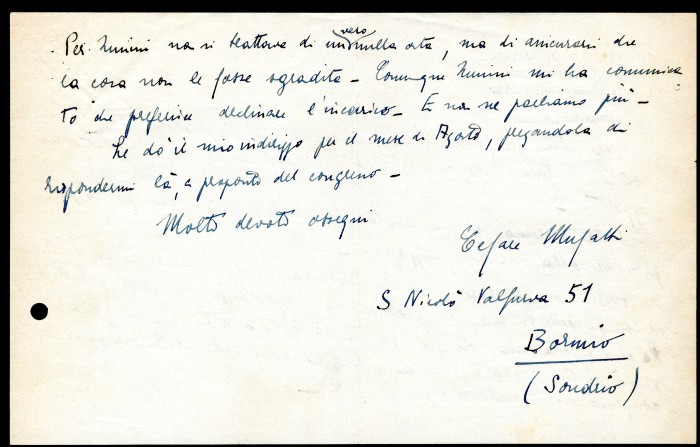 Per Zunini non si trattava di un vero nulla osta, ma di assicurarsi che
la cosa non le fosse sgradita – Comunque Zunini mi ha comunica
to che preferisce declinare l'incarico – E non ne parliamo più –
Le dò il mio indirizzo per il mese di Agosto, pregandola di
rispondermi là, a proposito del congresso –
Molto devoti ossequi
Cesare Musatti
S Nicolò Valfurva 51
Bormio
(Sondrio)